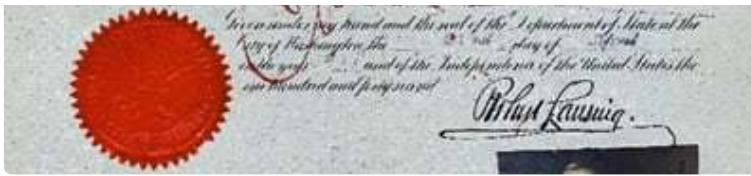 Given under my hand and the seal of the Department of State at the
City of Washington, the day of
in the year and of the Independence of the United States the
one hundred and forty second
Robert Lansing.